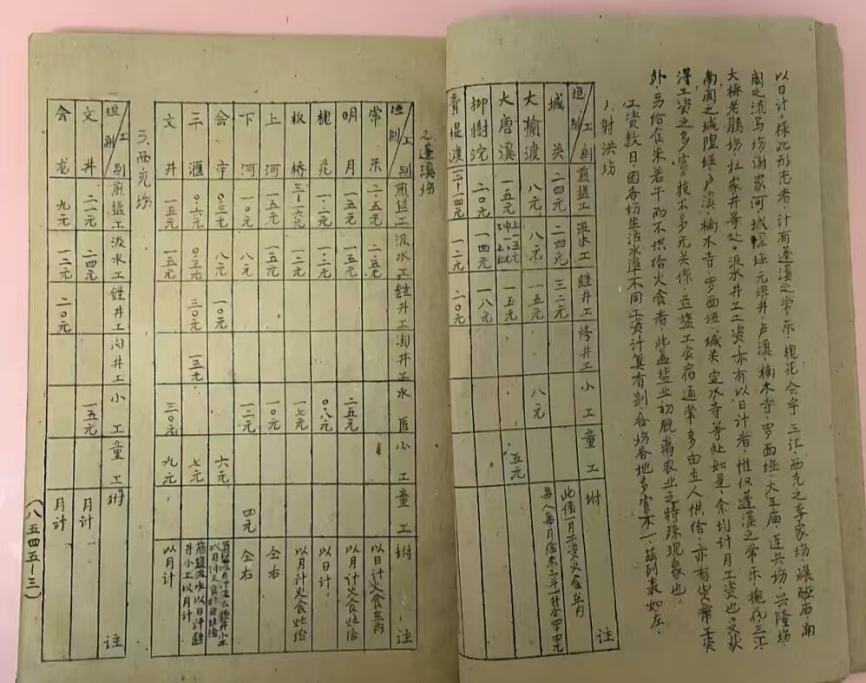 以日计,採此形式者,计有蓬溪之常乐、槐花、会亭、三汇,西充之李家场、碾砥庙、南
阆之流马场、谢家河、城隍垭、元坝井、卢溪、楠木寺、罗西垭、大王庙、连兴场、兴隆场、
大桥、老鸦场、杜家井等处。汲水井工工资,亦有以日计者,惟仅蓬溪之常乐、槐花、三汇、
南阆之城隍垭、卢溪、楠木寺、罗西垭、城关、宝水寺等处如是,余均计月工资也。又获
得工资之多寡,技术多元关系。盐工食宿通常多由主人供给,亦有货币工资
外,另给食米若干而不供给火食者,此盖盐业初脱离农业之特殊现象也。
工资数目,因各场生活水准不同,工资计算有别,各场各地多寡不一,兹列表如左:
1.射洪场
垣别/工别 煎盐工 汲水工 锉井工 修井工 小工 童工 附注
城关 二四元 二四元 三二元
大榆渡 八元 八元 一五元 八元
大唐溪 一五元 一五元 五元
柳树沱 二〇元 一四元 一八元
青堤渡 一二元 二〇元
2.蓬溪场
垣别/工别 煎盐工 汲水工 锉井工 淘井工 水匠 小工 童工 附注
常乐 以日计火食在内
明月 一五元 一五元 二五元 以月计火食灶给
槐花 一.二元 一.二元 〇.八元 以日计
板桥 三-六元 一二元 一七元 以月计火食灶给
上河 一五元 一五元 一〇元 仝右
下河 一〇元 八元 一二元 四元 仝右
会亭 〇.三元 八元 一〇元 六元
三汇 〇.六元 〇.三元 三〇元 一三元 七元 煎盐汲水以日计锉井小工以月计
文井 一五元 一五元 三〇元 九元 以月计
3.西充场
垣别/工别 煎盐工 汲水工 锉井工 淘井工 小工 童工 附注
文井 二一元 二四元 一五元 月计
会龙 九元 一二元 二〇元 月计
(八五四五—三)